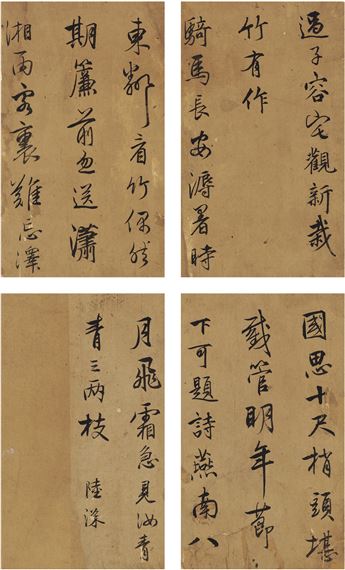 過子容宅觀新栽
竹有作
騎馬長安溽暑時
東鄰看竹偶然
期簾前忽送瀟
湘雨客裏難忘澤
國思十尺梢頭堪
截管明年節
下可題詩燕南八
月飛霜急見汝青
青三两枝 陸深